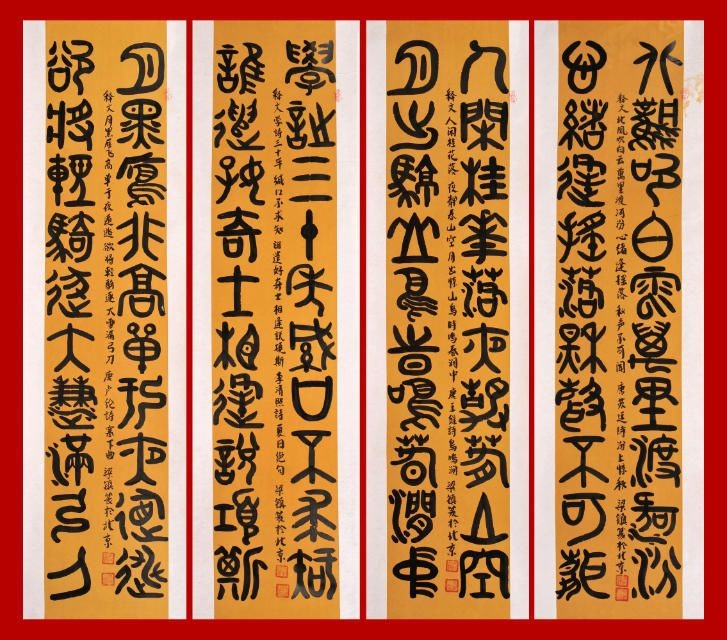 北風吹白雲萬里渡河汾
心緒逢搖落秋聲不可聞
释文 北風吹白云 萬里渡河汾 心緒逢搖落 秋声不可闻 唐 苏廷诗 汾上惊秋 梁镇篆於北京
人閑桂華落夜靜春山空
月出驚山鳥時鳴春澗中
释文 人闲桂花落 夜静春山空 月出惊山鸟 时鸣春涧中 唐 王维詩 鸟鸣涧 梁镇篆於北京
學詩三十年緘口不求知
誰遣好奇士相逢說項斯
释文 学诗三十年 缄口不求知 谁遣好奇士 相逢说项斯 李清照詩 夏日绝句 梁镇篆於北京
月黑雁飛高單于夜遁逃
欲將輕騎逐大雪滿弓刀
释文 月黑雁飞高 单于夜遁逃 欲将轻骑逐 大雪满弓刀 唐 卢纶詩 塞下曲 梁镇篆於北京